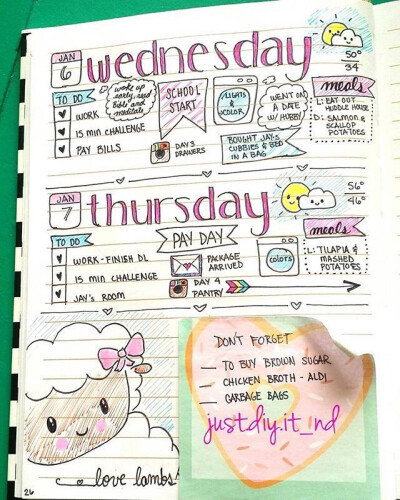 JAN
6
wednesday
50°
34
TO DO
WORK
15 MIN CHALLENGE
PAY BILLS
woke up
early, read
Bible and
meditate
SCHOOL
START
LIGHTS
&
COLOR
WENT ON
A DATE
W/ HUBBY
meals
L: EAT OUT
HUDDLE HOUSE
D: SALMON &
SCALLOP
POTATOES
DAY 3
DRAWERS
BOUGHT JAY'S
CUBBIES & BED
IN A BAG
JAN
7
thursday
56°
46°
TO DO
WORK - FINISH DL
15 MIN CHALLENGE
JAY'S ROOM
PAY DAY
PACKAGE
ARRIVED
DAY 4
PANTRY
COLORS
meals
L: TILAPIA &
MASHED
POTATOES
DON'T FORGET
TO BUY BROWN SUGAR
CHICKEN BROTH - ALDI
GARBAGE BAGS
justdiy.it_nd
love lambs
26